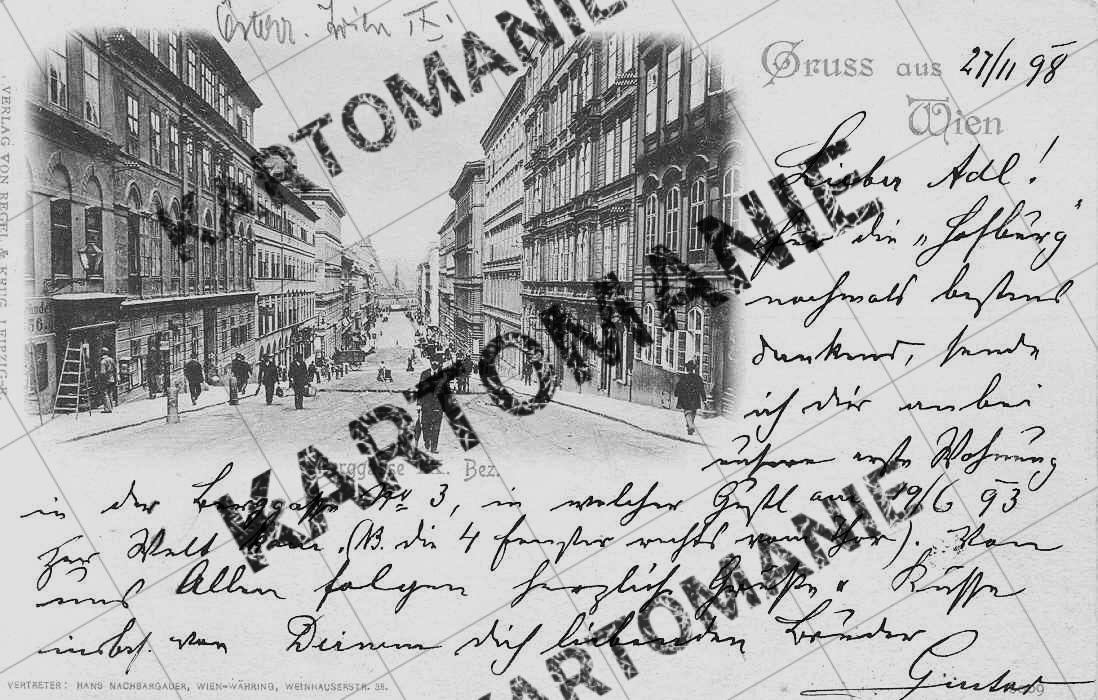 Österr. Wien IX.
Gruss aus Wien
27/11 98
Lieber Adl!
Für die „Hofburg"
nochmals bestens
dankend, sende
ich dir anbei
unsere erste Wohnung
in der Berggasse No 3, in welcher Gustl am 19/6 93
zur Welt kam. (NB. die 4 Fenster rechts vom Thor). Von
uns Allen folgen herzlich Grüße u Küsse
insbes. von Deinem dich liebenden Bruder
Gustav
Berggasse IX. Bez.
VERLAG VON REGEL & KRUG, LEIPZIG-R.
VERTRETER: HANS NACHBARGAUER, WIEN-WÄHRING, WEINHAUSERSTR. 38.
36.
KARTOMANIE
KARTOMANIE
KARTOMANIE
KARTOMANIE